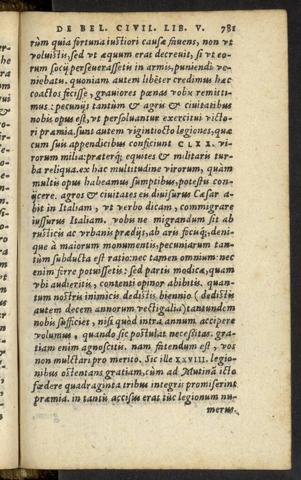 DE BEL. CIVIL. LIB. V. 781
rũm quia fortuna iustiori causæ fauens, non vt
voluistis, sed vt æquum erat decreuit, si vt eo-
rum socij perseuerassetis in armis, puniendi ve-
niebatis. quoniam autem libẽter credimus hæc
coactos fecisse, grauiores pœnas vobis remitti-
mus: pecunijs tantùm & agris & ciuitatibus
nobis opus est, vt persoluantur exercitui victo-
ri præmia. sunt autem vigintiocto legiones, quæ
cum suis appendicibus conficiunt CLXX. vi-
rorum milia: præterq́; equites & militaris tur-
ba reliqua. ex hac multitudine virorum, quàm
multis opus habeamus sumptibus, potestis con-
ijcere. agros & ciuitates eis diuisurus Cæsar a-
bijt in Italiam, vt verbo dicam, commigrare
iussurus Italiam. vobis ne migrandum sit ab
rusticis ac vrbanis prædijs, ab aris focisq́;, deni-
que à maiorum monumentis, pecuniarum tan-
tùm subducta est ratio: nec tamen omnium: nec
enim ferre potuissetis: sed partis modicæ, quam
vbi audieritis, contenti opinor abibitis. quan-
tum nostris inimicis dedistis biennio (dedistis
autem decem annorum vectigalia) tantundem
nobis sufficiet, nisi quòd intra annum accipere
volumus, quando sic postulat necessitas. gra-
tiam enim agnoscitis. nam fatendum est, vos
non mulctari pro merito. Sic ille XXVIII. legio-
nibus ostentans gratiam, cùm ad Mutinã icto
fœdere quadraginta tribus integris promiserint
præmia. in tantũ accisus erat tũc legionum nu-
merus.